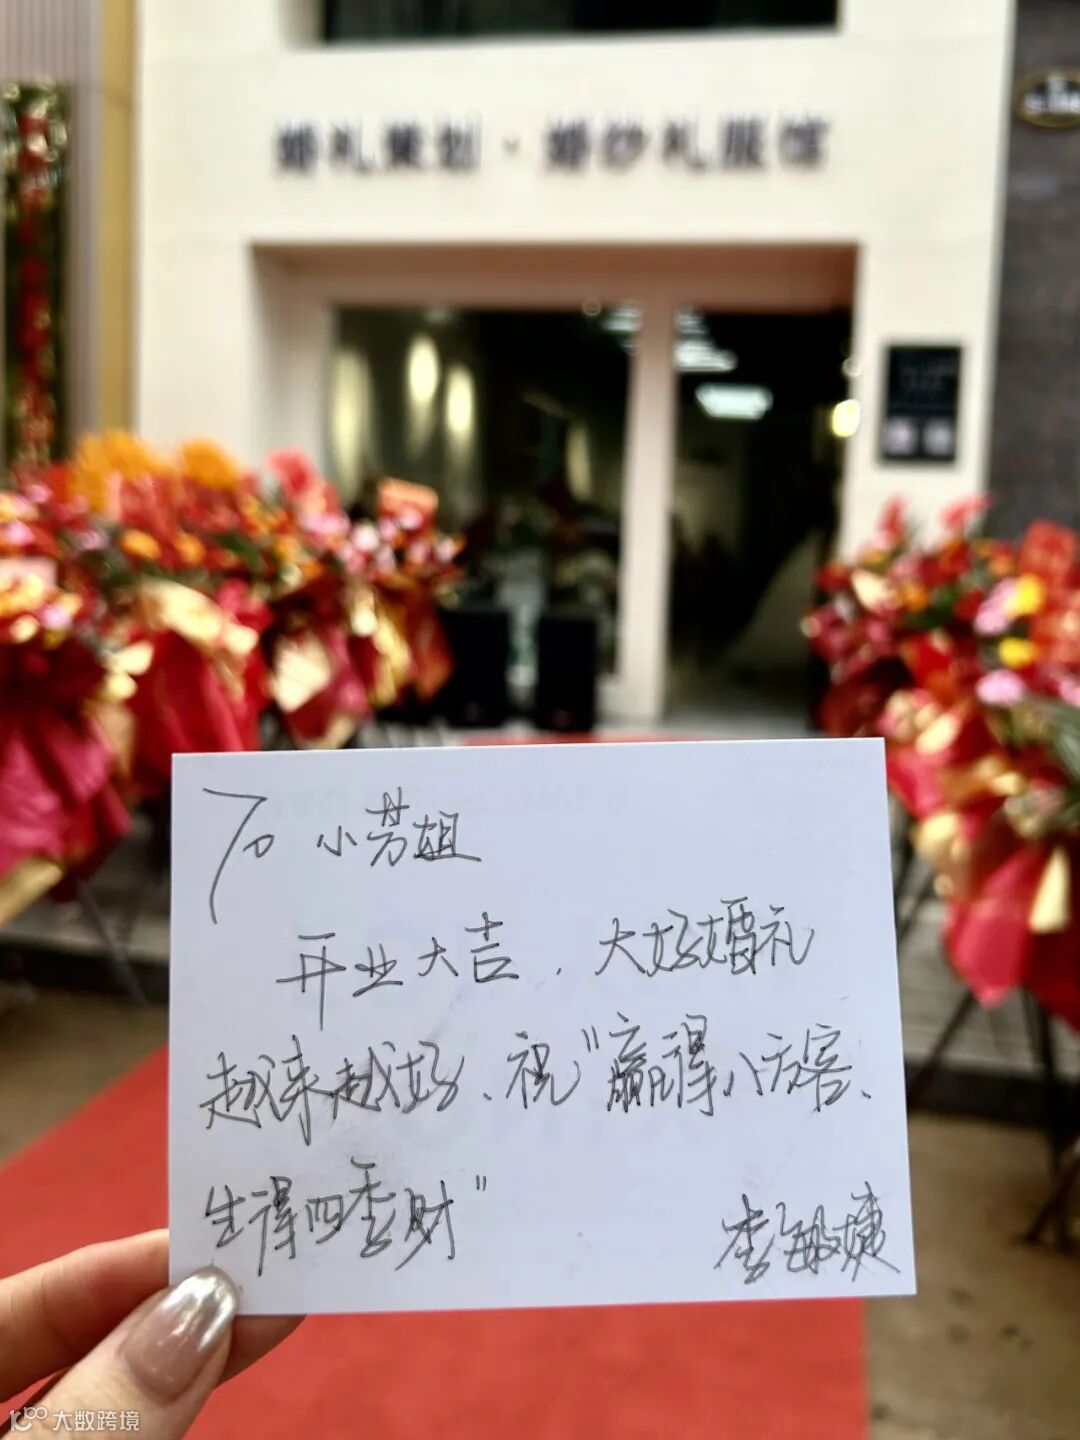 婚礼策划·婚纱礼服馆
To 小芳姐
开业大吉，大好婚礼
越来越好、祝"赢得八方客、
生得四季财"
李敏婕
大数跨境